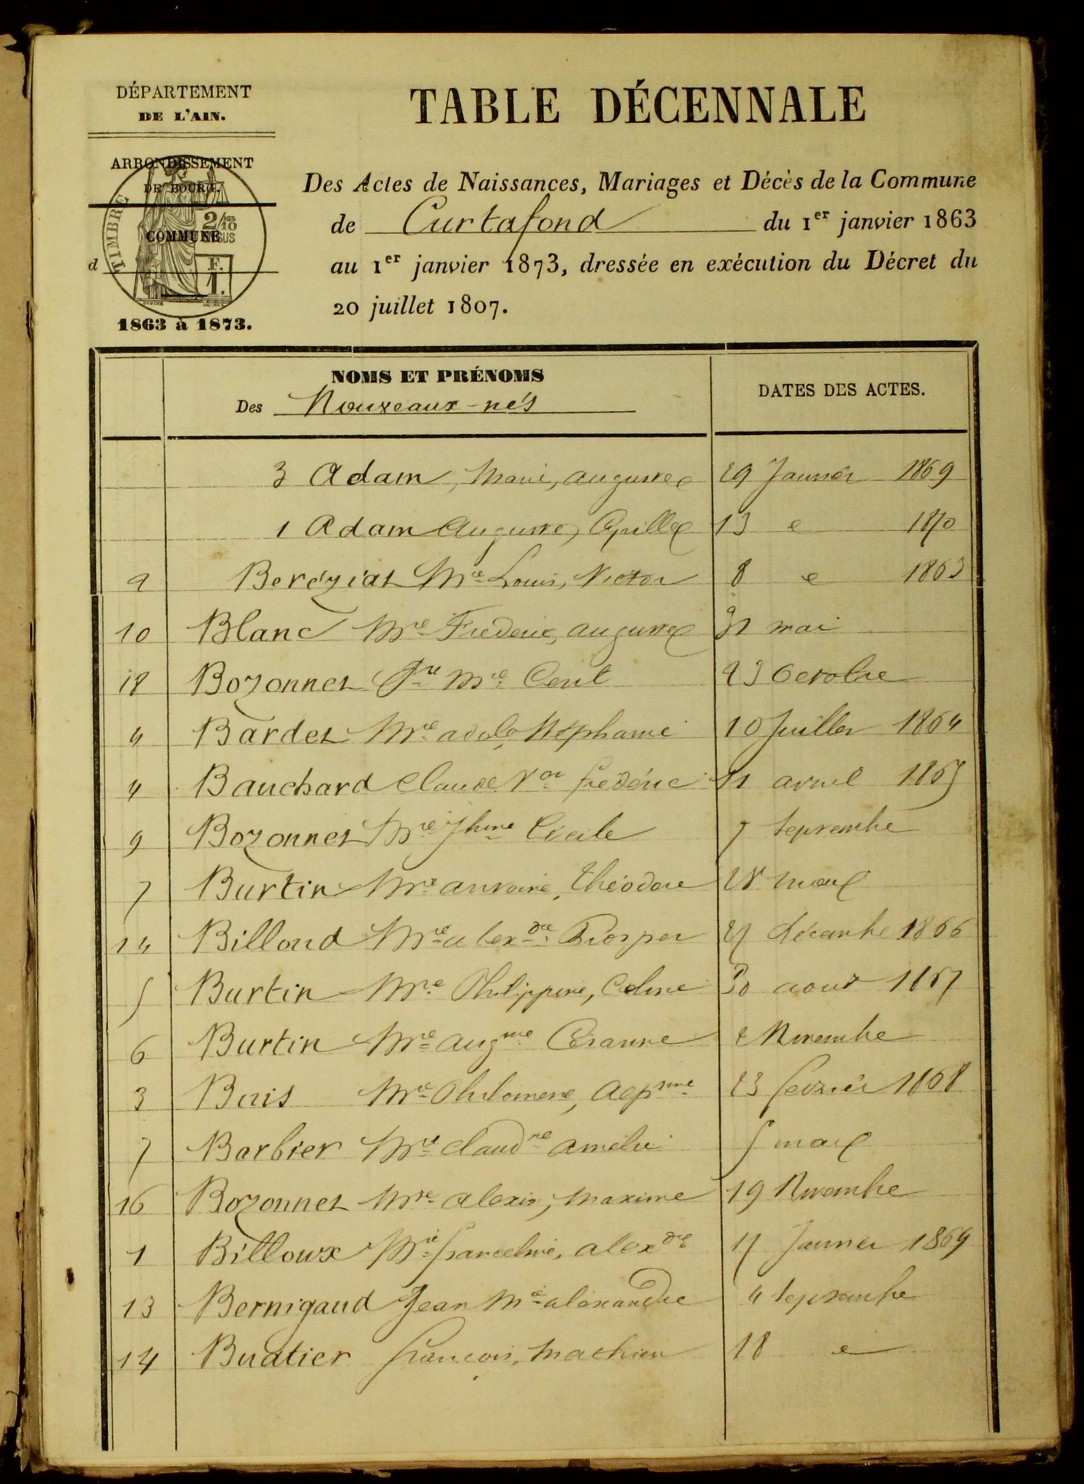 DÉPARTEMENT
DE L'AIN.
TABLE DÉCENNALE
ARRONDISSEMENT
DE BOURG.
TIMBRE
2/10
EN SUS
COMMUNE
d
F.
1.
1863 à 1873.
Des Actes de Naissances, Mariages et Décès de la Commune
de Curtafond du 1er janvier 1863
au 1er janvier 1873, dressée en exécution du Décret du
20 juillet 1807.
NOMS ET PRÉNOMS
Des Nouveaux-nés
DATES DES ACTES.
3 Adam, Marie, auguste 29 Janvier 1869
1 Adam Auguste, 13 e 1870
9 Béréziat Mie Louis, Victor 8 e 1863
10 Blanc Mie Frédéric, auguste 31 mai
18 Bozonnet Mie 23 Octobre
4 Bardet Mie adole Stéphanie 10 Juillet 1864
4 Bauchard Claude Vor frédéric 11 avril 1865
9 Bozonnet Mie Jhine Cécile 7 Septembre
7 Burtin Mie antoine, théodore 28 mars
14 Billoud Mie alexdre Prosper 27 décembre 1866
5 Burtin Mie Philippine, Celine 30 aout 1867
6 Burtin Mie augine Césarine 2 Novembre
3 Bais Mie Philomene, 23 février 1868
7 Barbier Mie claudne amélie 5 mars
16 Bozonnet Mie alexis, maxime 19 Novembre
1 Billoux Mie franceline, alexdre 17 Janvier 1869
13 Bernigaud Jean Mie alexandre 4 Septembre
14 Buatier françois, Mathieu 18 e